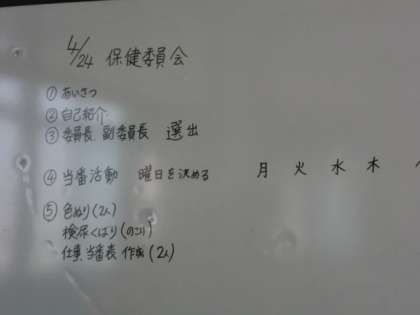 4/24 保健委員会
① あいさつ
② 自己紹介
③ 委員長 副委員長 選出
④ 当番活動 曜日を決める 月 火 水 木
⑤ 色ぬり(2人)
検尿くばり(のこり)
仕事、当番表 作成(2人)